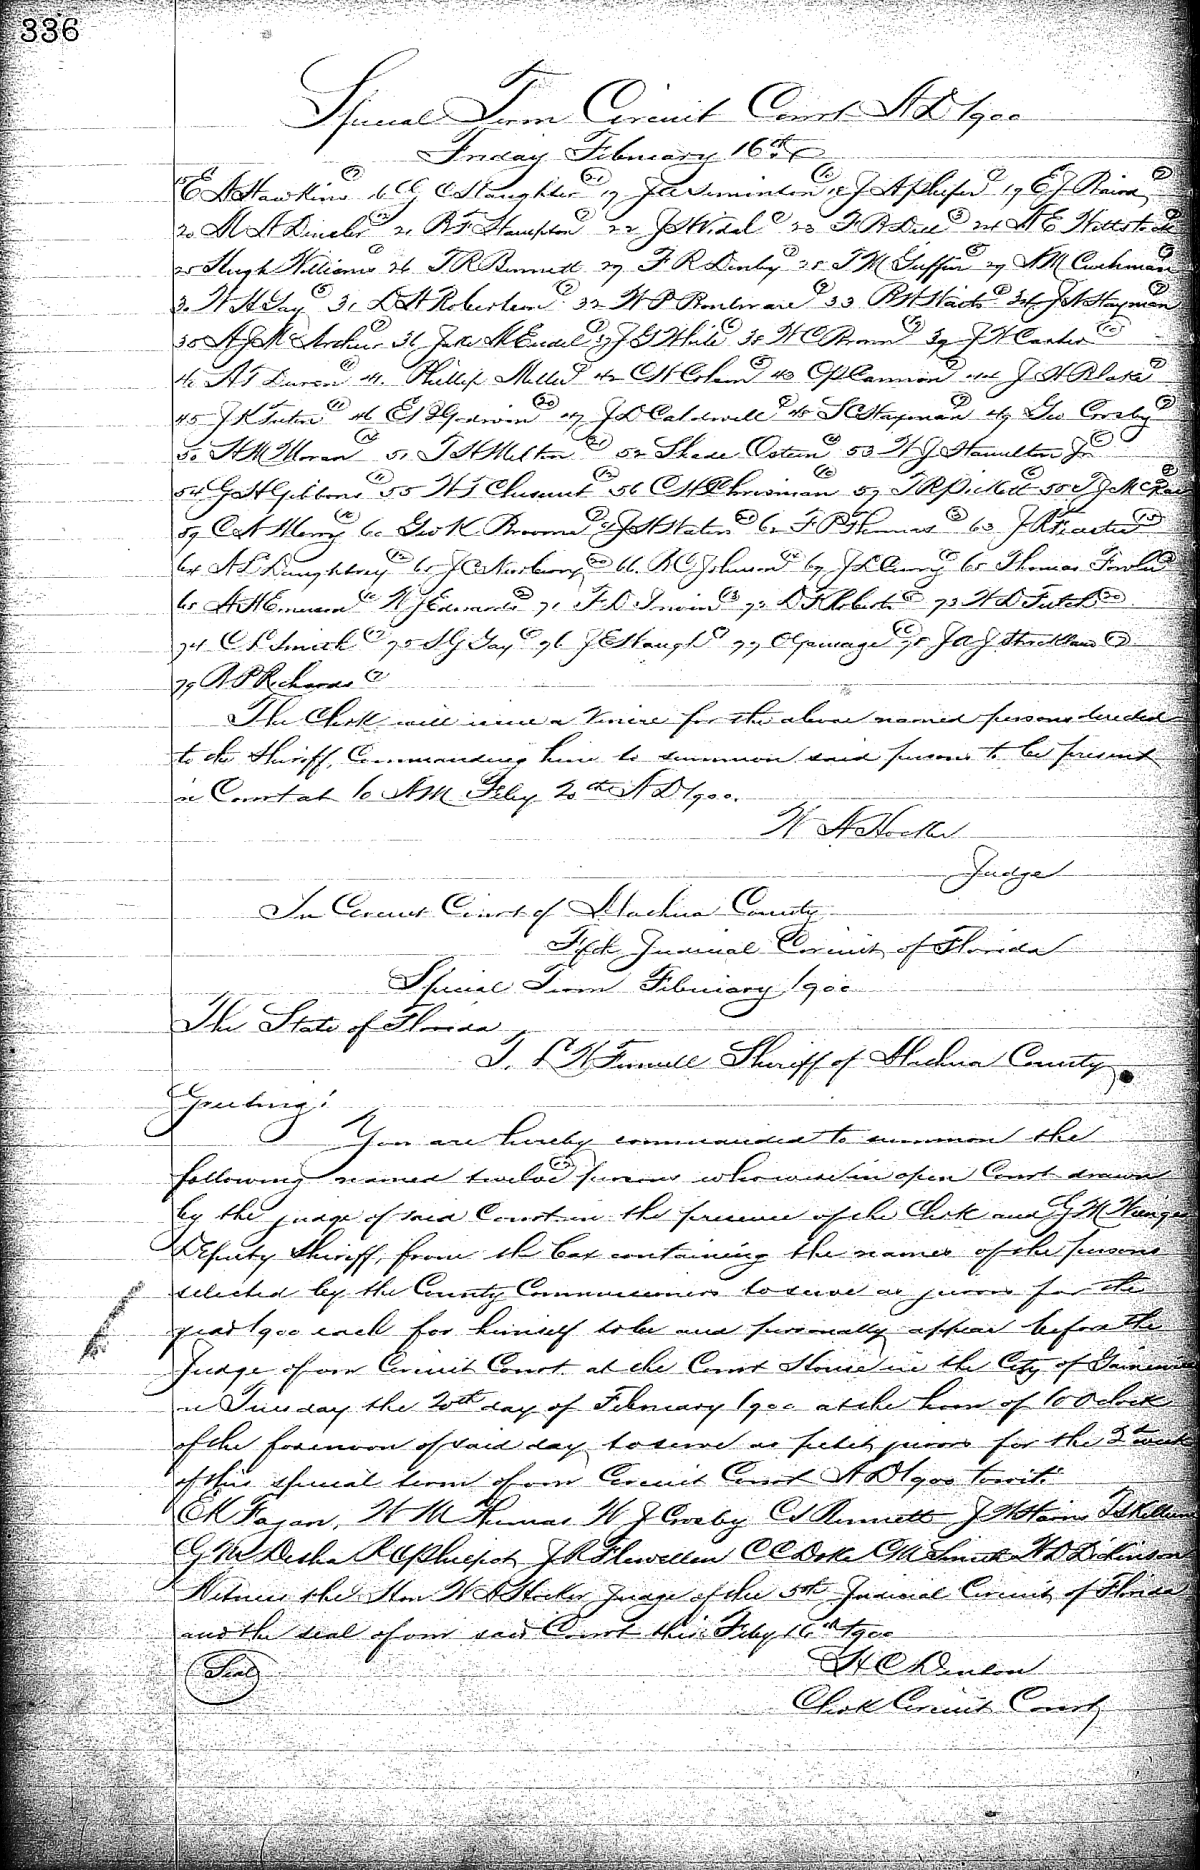 336
Special Term Circuit Court A D 1900
Friday February 16th
E A Hawkins 16 C C Slaughter 17 18 J A 19 E J Baird
20 21 R F Hampton 22 J S Vidal 23 F R 24
25 Hugh Williams 26 T R Bennett 27 F R Denby 28 J M Griffin 29 A M Cushman
30 W H Gay 31 L H Robertson 32 W P 33 R H 34 J A Hayman
35 A J McArthur 36 37 J G White 38 W C Brown 39 J W Carter
40 41 Phillip Miller 42 C H 43 Cannon 44 J W Blake
45 J K 46 47 J D Caldwell 48 S C Hayman 49 Geo Crosby
50 H M Moran 51 J H Melton 52 Shade Osteen 53 W J Hamilton Jr
54 G H Gibbons 55 W T Chesnut 56 57 T R Pickett 58
59 60 Geo K Broome 61 62 F P Thomas 63 J R
64 65 J C Newberry 66 R C Johnson 67 68 Thomas
69 W J Edwards 71 F D 72 D F Roberts 73 W D Futch
74 C P Smith 75 S G Gay 76 77 78 J A J Strickland
79 R P Richards
The Clerk will issue a Venire for the above named persons directed
to the Sheriff, Commanding him to summon said persons to be present
in Court at 10 A M Feby 20th A D 1900.
W A Hocker
Judge
In Circuit Court of Alachua County
Fifth Judicial Circuit of Florida
Special Term February 1900
The State of Florida
To L W Fennell Sheriff of Alachua County
Greeting:
You are hereby commanded to summon the
following named twelve persons who were in open Court drawn
by the judge of said Court in the presence of the Clerk and G M
Deputy Sheriff, from the box containing the names of the persons
selected by the County Commissioners to serve as jurors for the
year 1900 each for himself to be and personally appear before the
Judge of our Circuit Court at the Court House in the City of Gainesville
on Tuesday the 20th day of February 1900 at the hour of 10 Oclock
of the forenoon of said day to serve as petit jurors for the 2nd week
of this special term of our Circuit Court A D 1900 towit:
E K Fagan, W M Thomas W J Crosby C S Bennett J W
G W Desha R C Philpot J R Flewellen C C Doke C M Smith W D Dickinson
Witness the Hon W A Hocker Judge of the 5th Judicial Circuit of Florida
and the seal of our said Court this Feby 16th 1900
Seal
H C Denton
Clerk Circuit Court